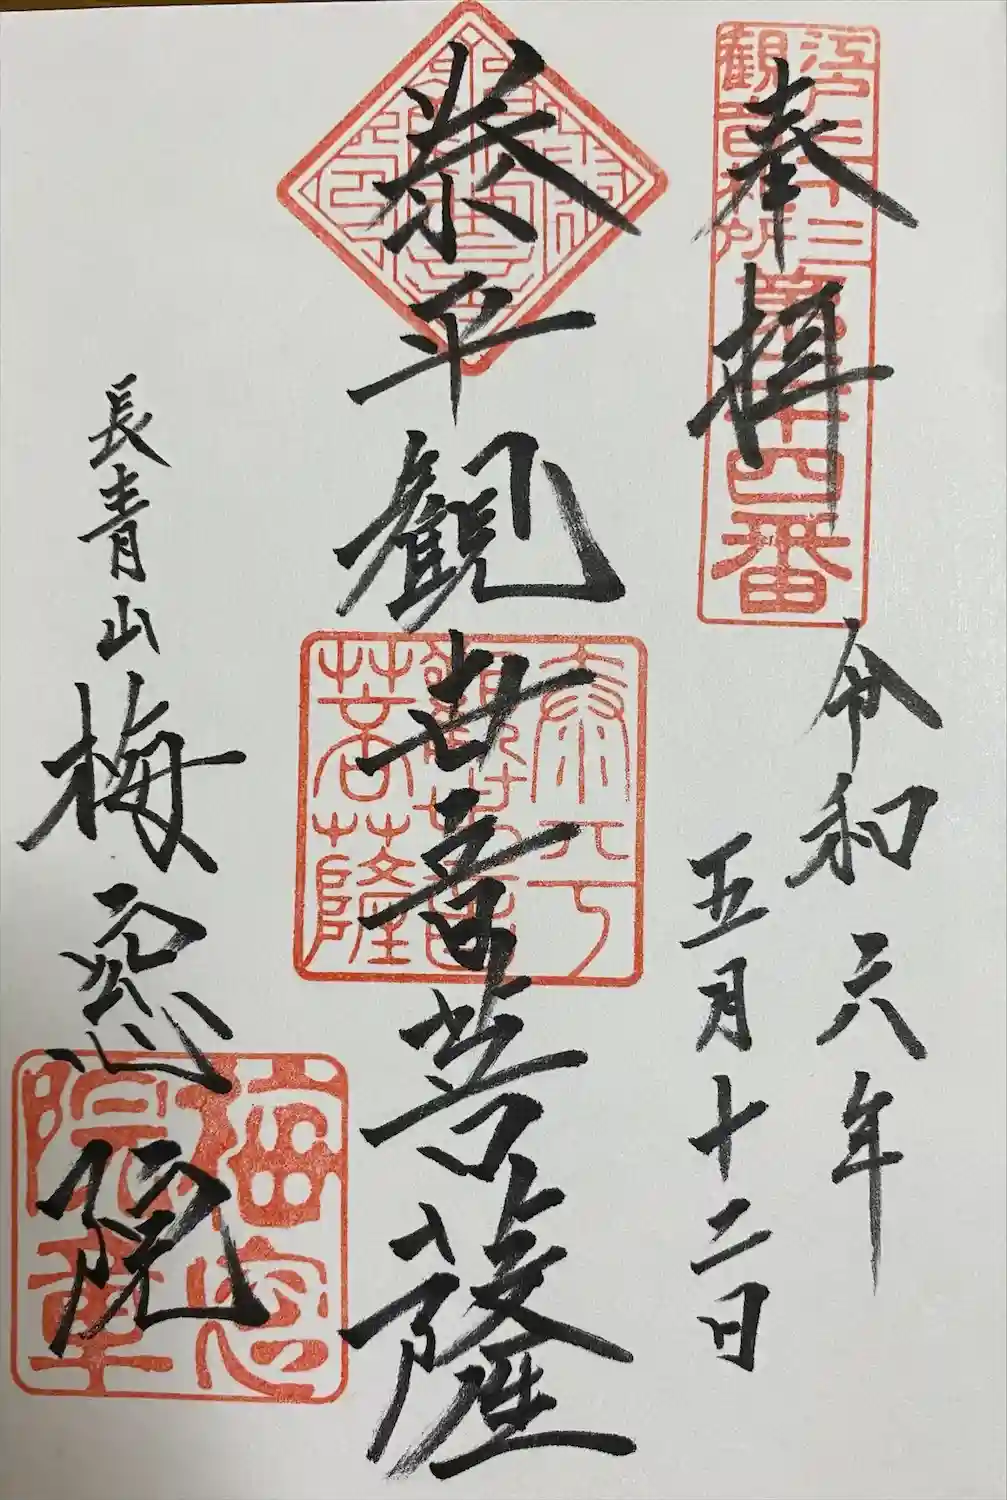 江戸三十三
観音札所
第二十四番
奉拝
令和六年
五月十二日
泰平観世音菩薩
泰平
觀世音
菩薩
長青山 梅窓院
梅窓
院章